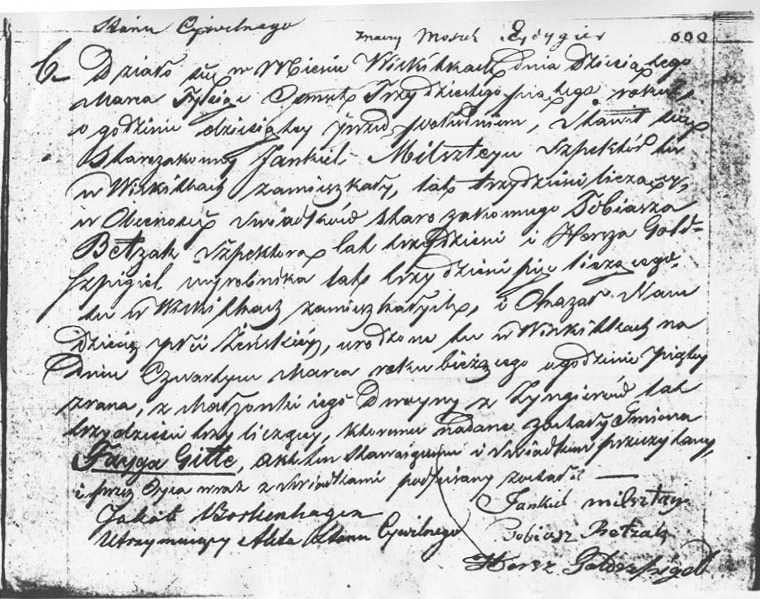 Stanu Cywilnego
znany Moszek Edygier
6 Działo się w Mieście Wiskitkach dnia dziesiątego
Marca Tysiąc Osmset Trzydziestego piątego roku
o godzinie dziesiątey przed południem, Stawił się
Starozakonny Jankiel Milszteyn Szpektór tu
w Wiskitkach zamieszkały, lat trzydzieści liczący,
w Obecności Swiadków starozakonnego Tobiasza
Betzak Szpektora lat trzydzieści i Hersza Gold=
szpigiel wyrobnika lat trzydzieści pięć liczącego
tu w Wiskitkach zamieszkałych, i Okazał Nam
dziecię płci żeńskiey, urodzone tu w Wiskitkach na
dniu Czwartym Marca roku bieżącego o godzinie piątey
zrana, z małżonki iego Dwoyry z Zyngierów lat
trzydzieści trzy liczący, któremu nadane zostały Imiona
Fayga Gitte, Akt ten stawaiącemu i Swiadkom przeczytany,
i przez Oyca wraz z swiadkami podpisany został
Jankiel milsztey
Jakób Borkenhagen
Tobiasz Betzak
Utrzymuiący Akta Stanu Cywilnego
Hersz Goldszpigel